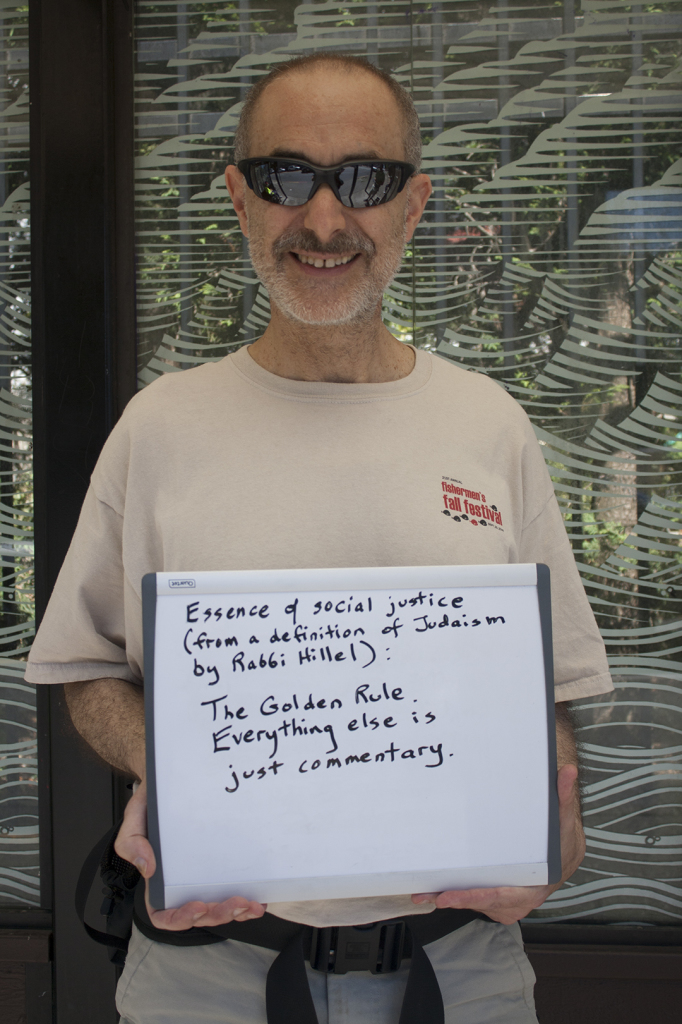 fishermen's
fall festival
Quartet
Essence of social justice
(from a definition of Judaism
by Rabbi Hillel):
The Golden Rule.
Everything else is
just commentary.